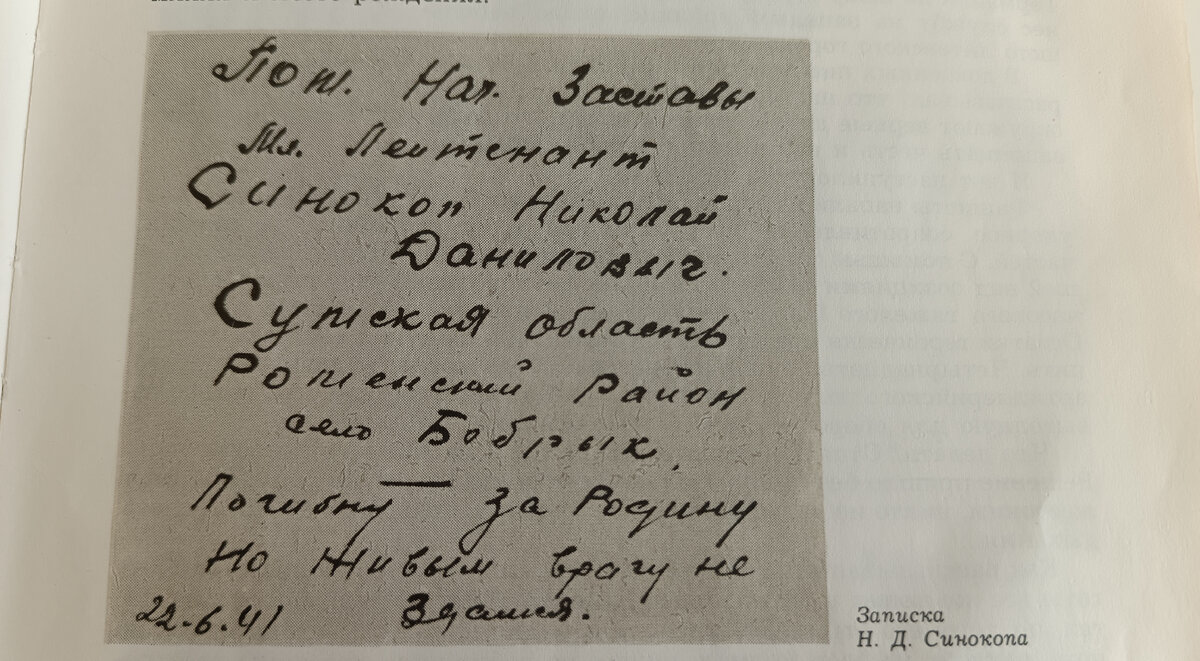 Пом. Нач. Заставы
Мл. Лейтенант
Синокоп Николай
Даниловыч.
Сумская область
Роменский район
село Бобрык.
Погибну за Родину
Но живым врагу не
Здамся.
22.6.41
Записка
Н. Д. Синокопа